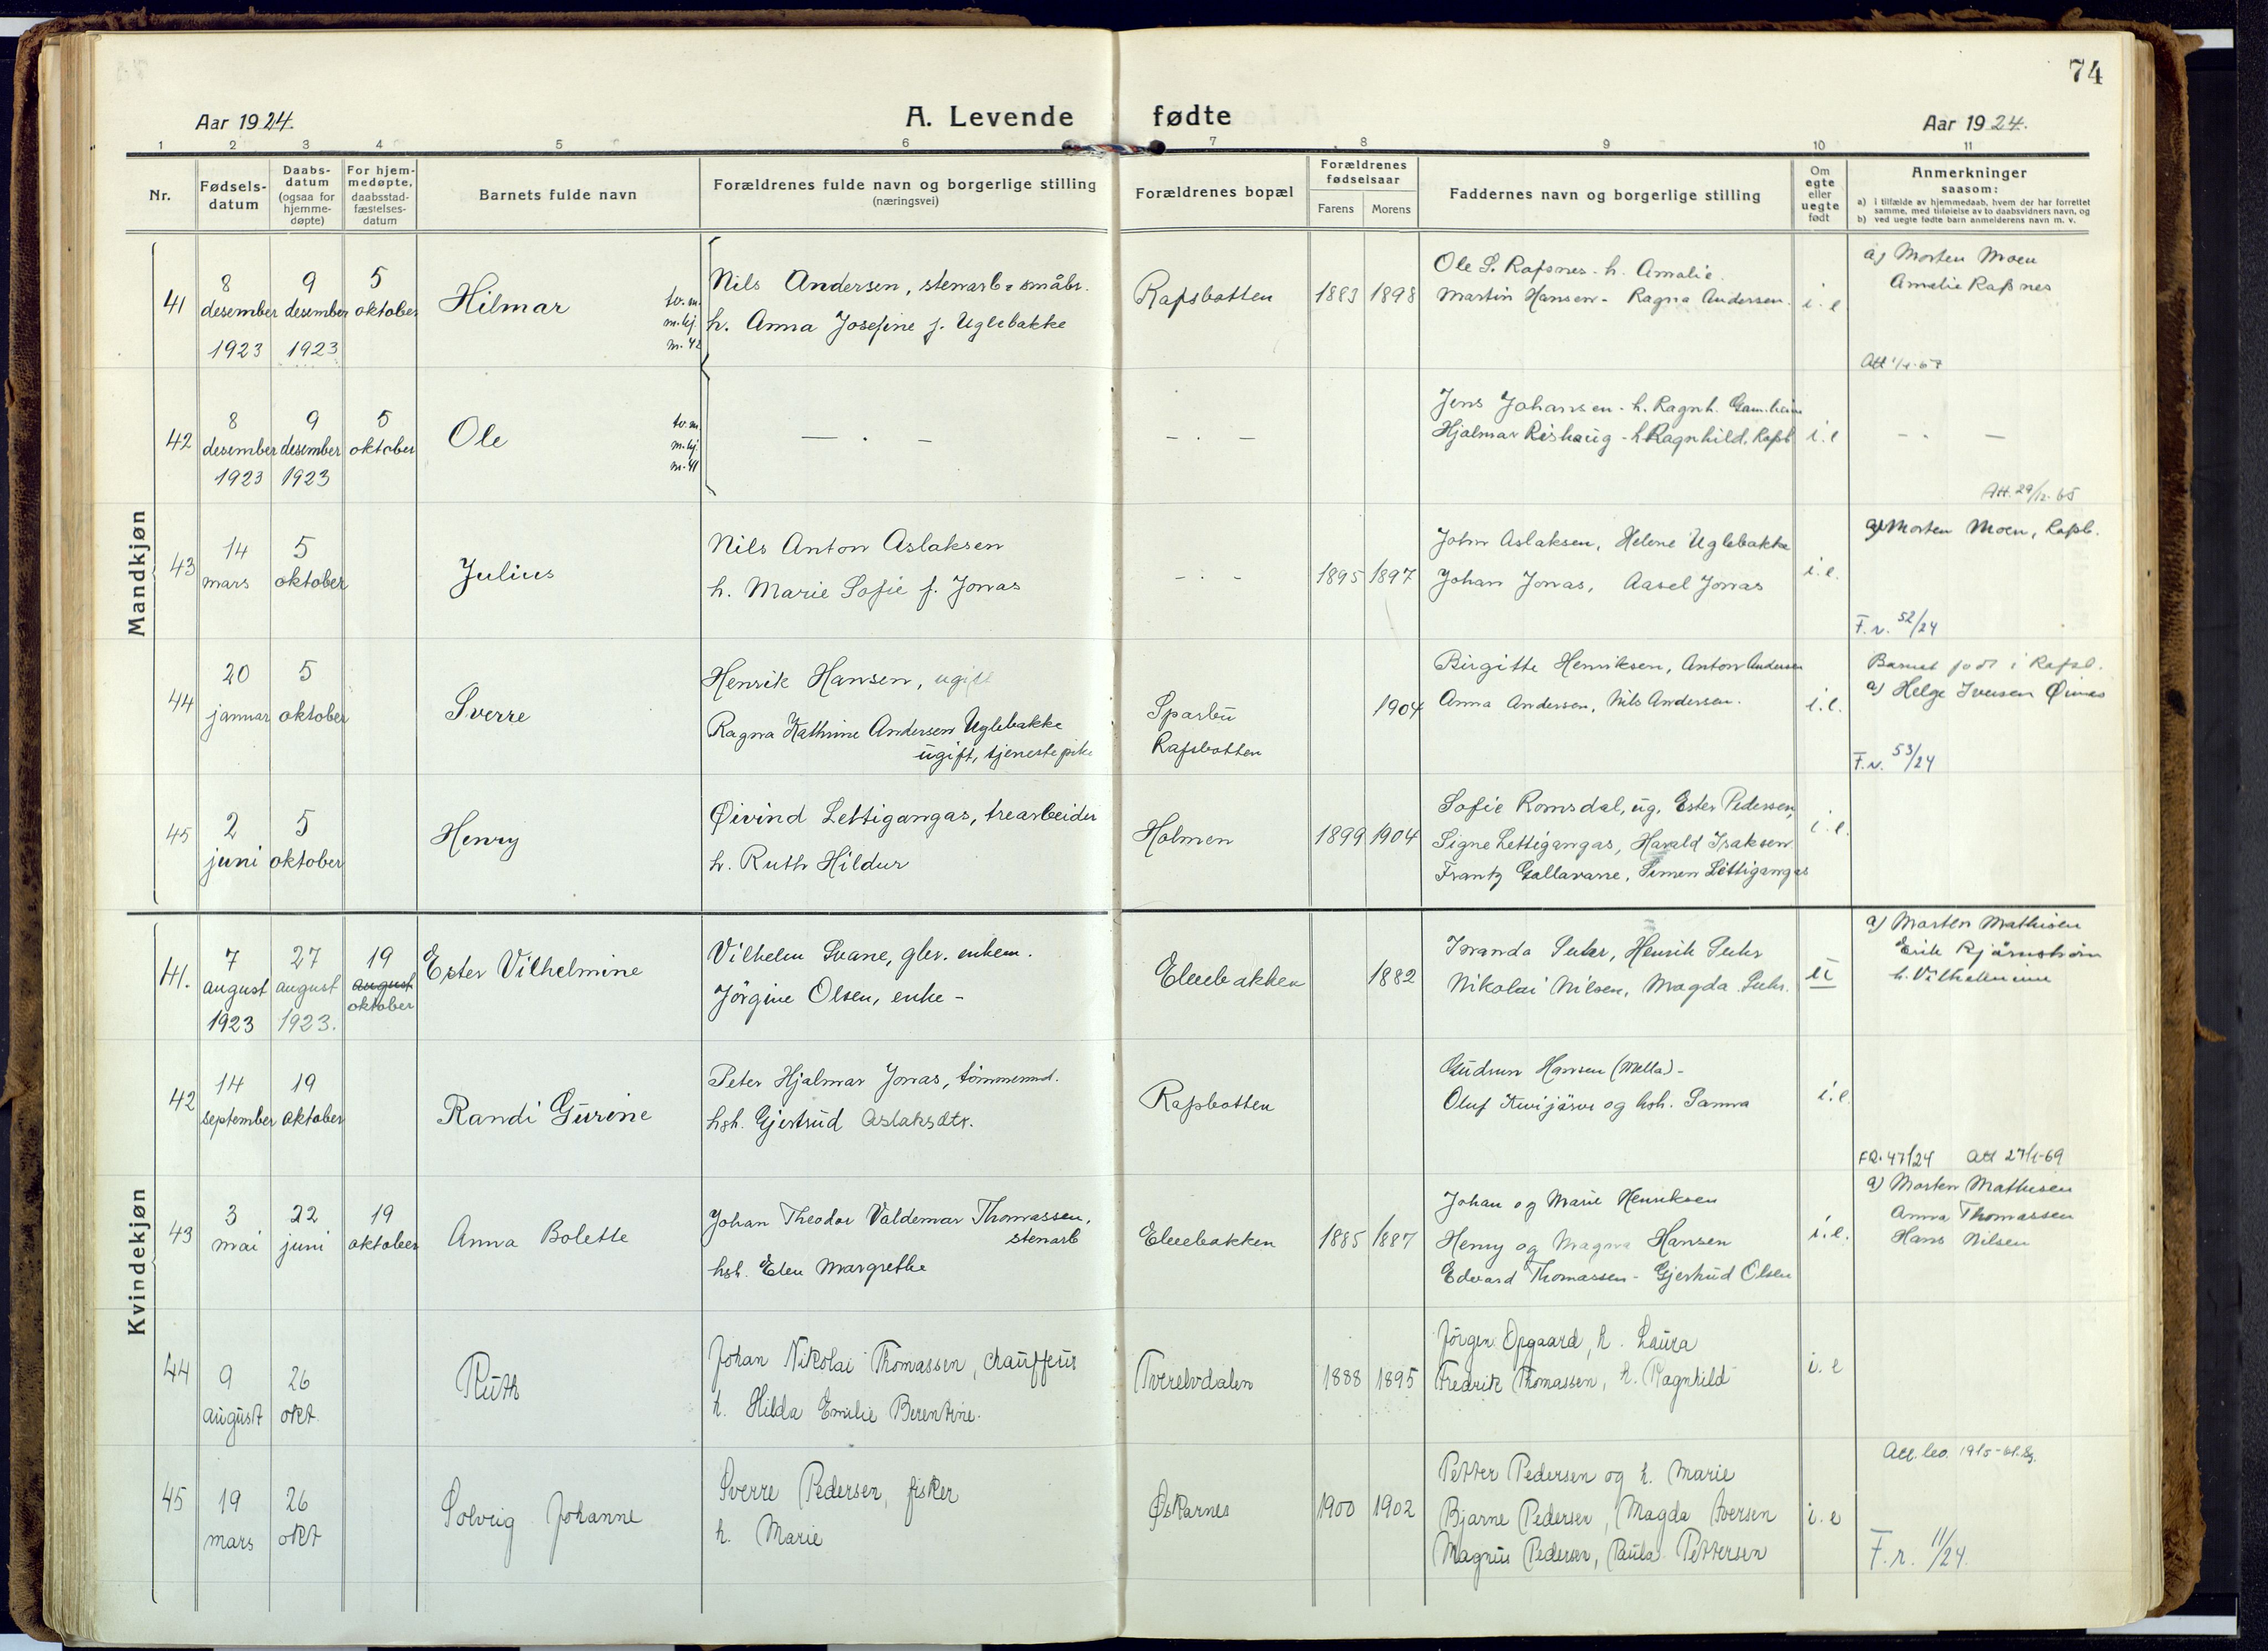 74
Aar 1924.
A. Levende fødte
Aar 1924.
1 2 3 4 5 6 7 8 9 10 11
Nr.
Fødsels-
datum
Daabs-
datum
(ogsaa for
hjemme-
døpte)
For hjem-
medøpte,
daabsstad-
fæstelses-
datum
Barnets fulde navn
Forældrenes fulde navn og borgerlige stilling
(næringsvei)
Forældrenes bopæl
Forældrenes
fødselsaar
Farens Morens
Faddernes navn og borgerlige stilling
Om
egte
eller
uegte
født
Anmerkninger
saasom:
a) i tilfælde av hjemmedaab, hvem der har forrettet
samme, med tilføielse av to daabsvidners navn, og
b) ved uegte fødte barn anmelderens navn m. v.
Mandkjøn
41
8
desember
1923
9
desember
1923
5
oktober
Hilmar
tv. m.
m. kj.
m. 42
Nils Andersen, stenarb = småbr.
h. Anna Josefine f. Uglebakke
Rafsbotten
1883 1898
Ole S. Rafsnes - h. Amalie.
Martin Hansen - Ragna Andersen.
i. e
a) Morten Moen
Amalie Rafsnes
42
8
desember
1923
9
desember
1923
5
oktober
Ole
tv. m.
m. kj.
m. 41
— . —
— . —
Jens Johansen - h. Ragnh.
Hjalmar Rishaug - h Ragnhild, Rafsb
i. e
— . —
Att. 29/12-65
43
14
mars
5
oktober
Julius
Nils Anton Aslaksen
h. Marie Sofie f. Jonas
- . -
1895 1897
John Aslaksen, Helene Uglebakke
Johan Jonas, Aasel Jonas
i. e.
a) Morten Moen, Rafsb.
F. r. 52/24
44
20
januar
5
oktober
Sverre
Henrik Hansen, ugift
Ragna Kathrine Andersen Uglebakke
ugift, tjenestepike
Sparbu
Rafsbotten
1904
Birgitte Henriksen, Anton Andersen
Anna Andersen, Nils Andersen.
i. e.
Barnet født i Rafsb.
a) Helge Iversen
F. r. 53/24
45
2
juni
5
oktober
Henry
Øivind Lettigangas, trearbeider
h. Ruth Hildur
Holmen
1899 1904
Sofie Romsdal, ug. Ester Pedersen,
Signe Lettigangas, Harald Isaksen
Frantz Gallavarre, Simen Lettigangas
i. e.
Kvindekjøn
41.
7
august
1923
27
august
1923.
19
august
oktober
Ester Vilhelmine
Vilhelm Svane, glsv. enkem.
Jørgine Olsen, enke -
Elvebakken
1882
Iwanda Suhr, Henrik Suhr
Nikolai Nilsen, Magda Suhr.
u
a) Morten Mathisen
h. Vilhelmine
42
14
september
19
oktober
Randi Gurine
Peter Hjalmar Jonas, tømmermd.
hsh. Gjertrud Aslaksdtr.
Rafsbotten
Gudrun Hansen (Mella) -
Oluf Kivijärvi og hsh. Sanna
i. e.
FR. 47/24 Att 27/1-69
43
3
mai
22
juni
19
oktober
Anna Bolette
Johan Theodor Valdemar Thomassen,
stenarb
hsh. Elen Margrethe
Elvebakken
1885 1887
Johan og Marie Henriksen
Henry og Magna Hansen
Edvard Thomassen - Gjertrud Olsen
i. e.
a) Morten Mathisen
Anna Thomassen
Hans Nilsen
44
9
august
26
okt.
Ruth
Johan Nikolai Thomassen, chauffeur
h. Hilda Emilie Berentine.
Tverelvdalen
1888 1895
Jörgen Opgaard, h. Laura
Fredrik Thomassen, h. Ragnhild
i. e
45
19
mars
26
okt
Solveig Johanne
Sverre Pedersen, fisker
h. Marie
Øskarnes
1900 1902
Petter Pedersen og h. Marie
Bjarne Pedersen, Magda Iversen
Magnus Pedersen, Paula Pettersen
i. e
F. r. 11/24.